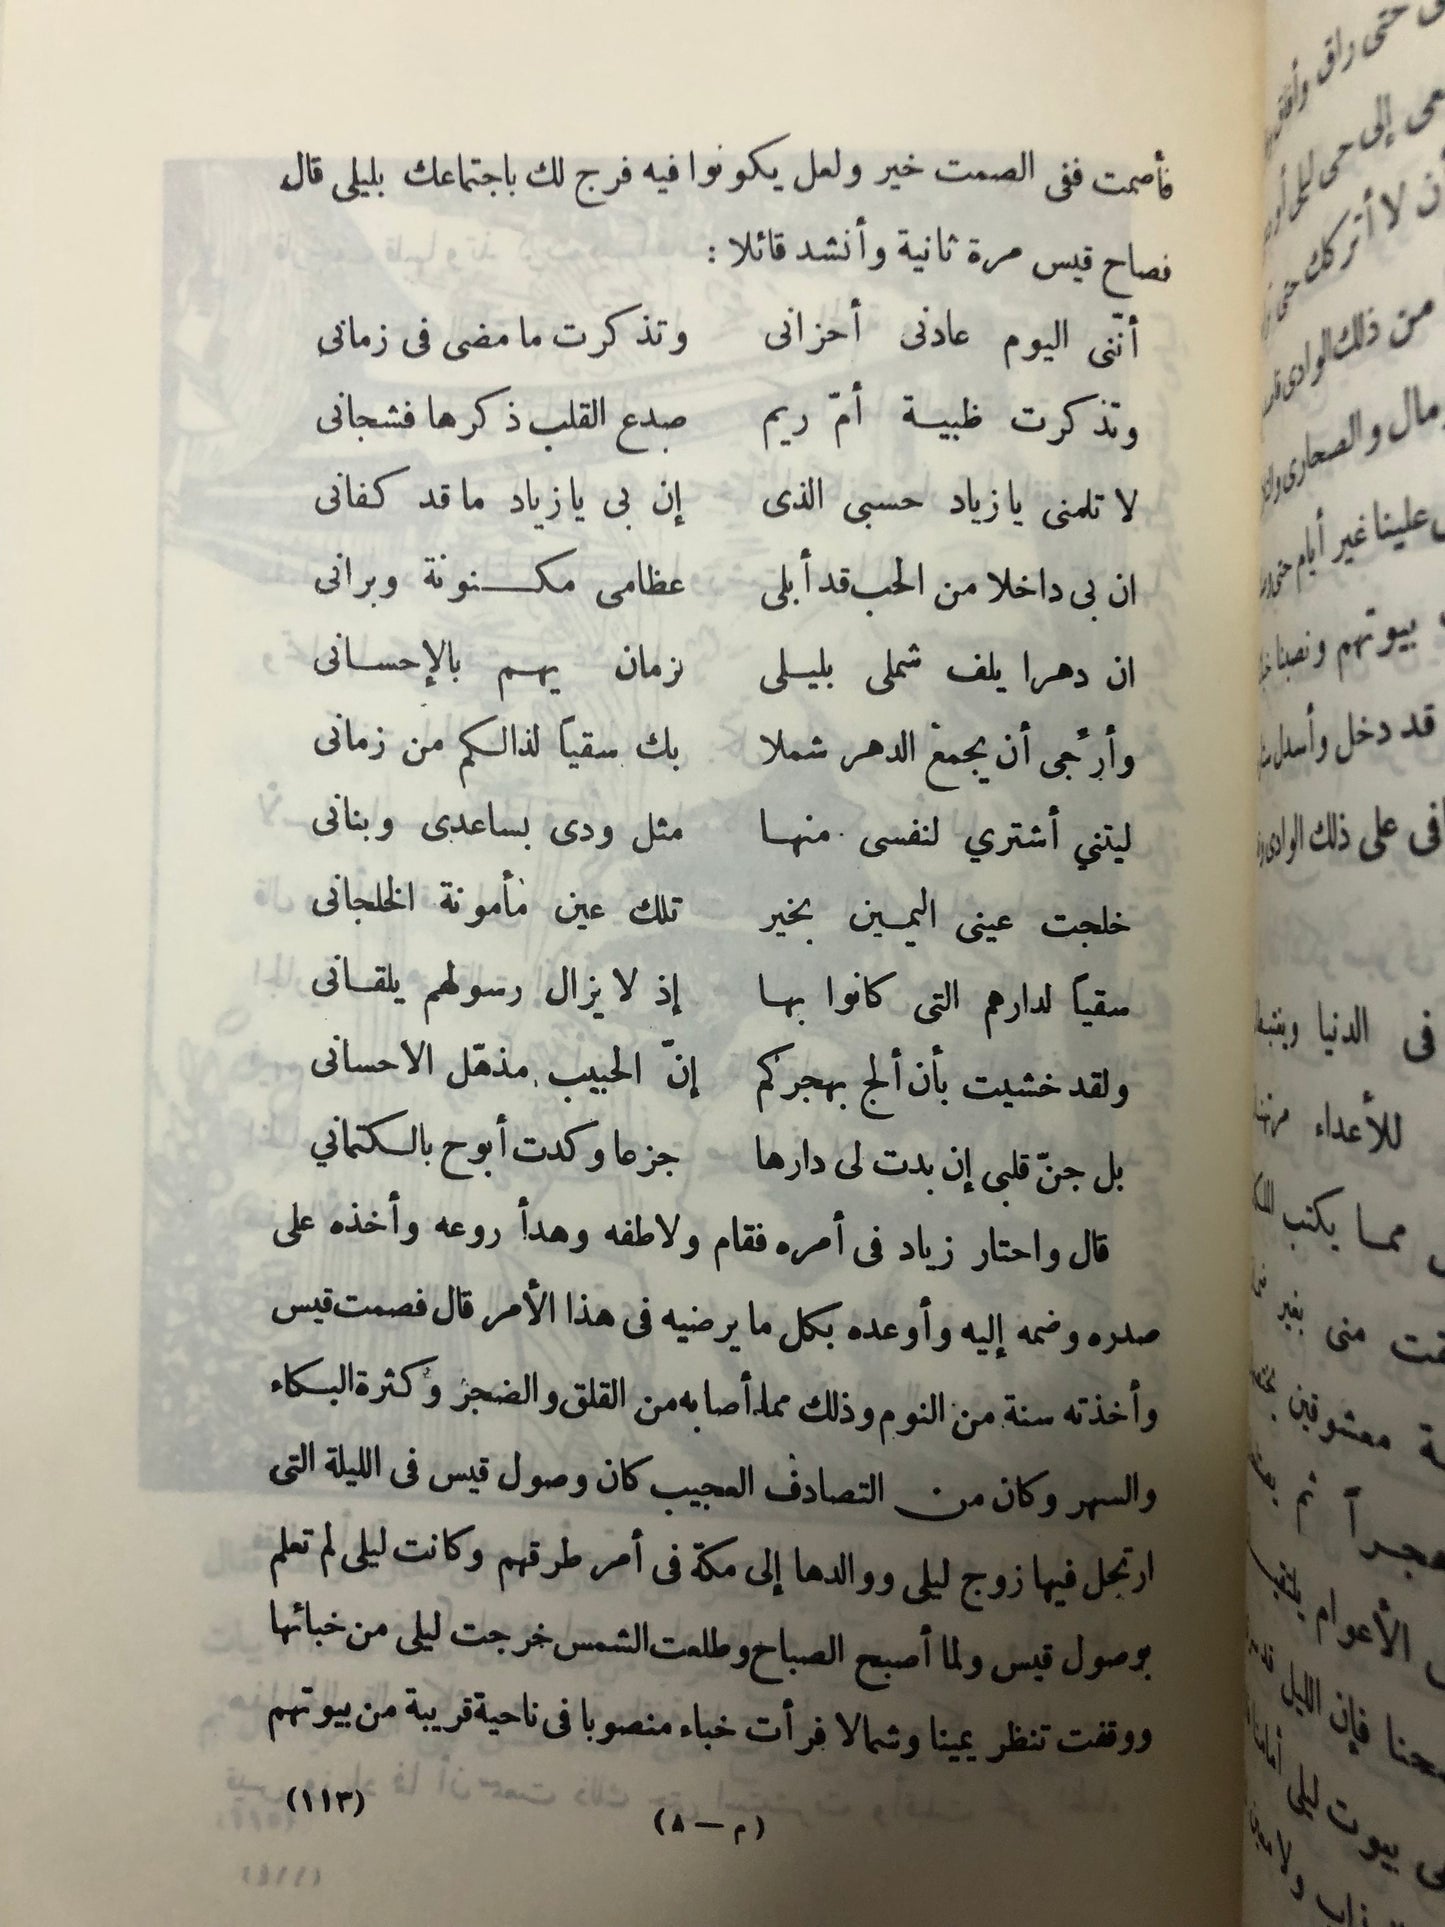 فأصمت ففى الصمت خير ولعل يكونوا فيه فرج لك باجتماعك بليلى قال
فصاح قيس مرة ثانية وأنشد قائلا :
أنّنى اليوم عادنى أحزانى وتذكرت ما مضى فى زمانى
وتذكرت ظبيــة أمّ ريم صدع القلب ذكرها فشجانى
لا تلمنى يا زياد حسبى الذى إن بى يا زياد ما قد كفانى
ان بى داخلا من الحب قد أبلى عظامى مكـــنونة وبرانى
ان دهرا يلف شملى بليــلى لزمان يهــم بالإحســانى
وأرجى أن يجمع الدهر شملا بك سقياً لذالكم من زمانى
ليتني أشتري لنفسى منهــا مثل ودى بساعدى وبنانى
خلجت عينى اليمــين بخير تلك عين مأمونة الخلجانى
سقياً لدارهم التى كانوا بهــا إذ لا يزال رسولهم يلقــانى
ولقد خشيت بأن ألج بهجركم إنّ الحبيب مذهّل الاحسانى
بل جنّ قلبى إن بدت لى دارها جزعا وكدت أبوح بالــكتماني
قال واحتار زياد فى أمره فقام ولاطفه وهدأ روعه وأخذه على
صدره وضمه إليه وأوعده بكل ما يرضيه فى هذا الأمر قال فصمت قيس
وأخذته سنة من النوم وذلك مما أصابه من القلق والضجر وكثرة البــكاء
والسهر وكان من التصادف العجيب كان وصول قيس فى الليلة التى
ارتحل فيها زوج ليلى ووالدها إلى مكة فى أمر طرقهم وكانت ليلى لم تعلم
بوصول قيس ولما أصبح الصباح وطلعت الشمس خرجت ليلى من خبائها
ووقفت تنظر يمينا وشمالا فرأت خباء منصوبا فى ناحية قريبة من بيوتهم
(١١٣)
(م — ٨)
حتى راق
إلى حى ليلى
أن لا أتركك
من ذلك الوادى
والصحارى
علينا غير أيام
بيوتهم ونصبنا
قد دخل وأسدل
على ذلك الوادى
فى الدنيا
للأعداء
ممــا يكتب
منى بغير
معشوقين
ثم
الأعوام
فإن الليل
بيوت ليلى